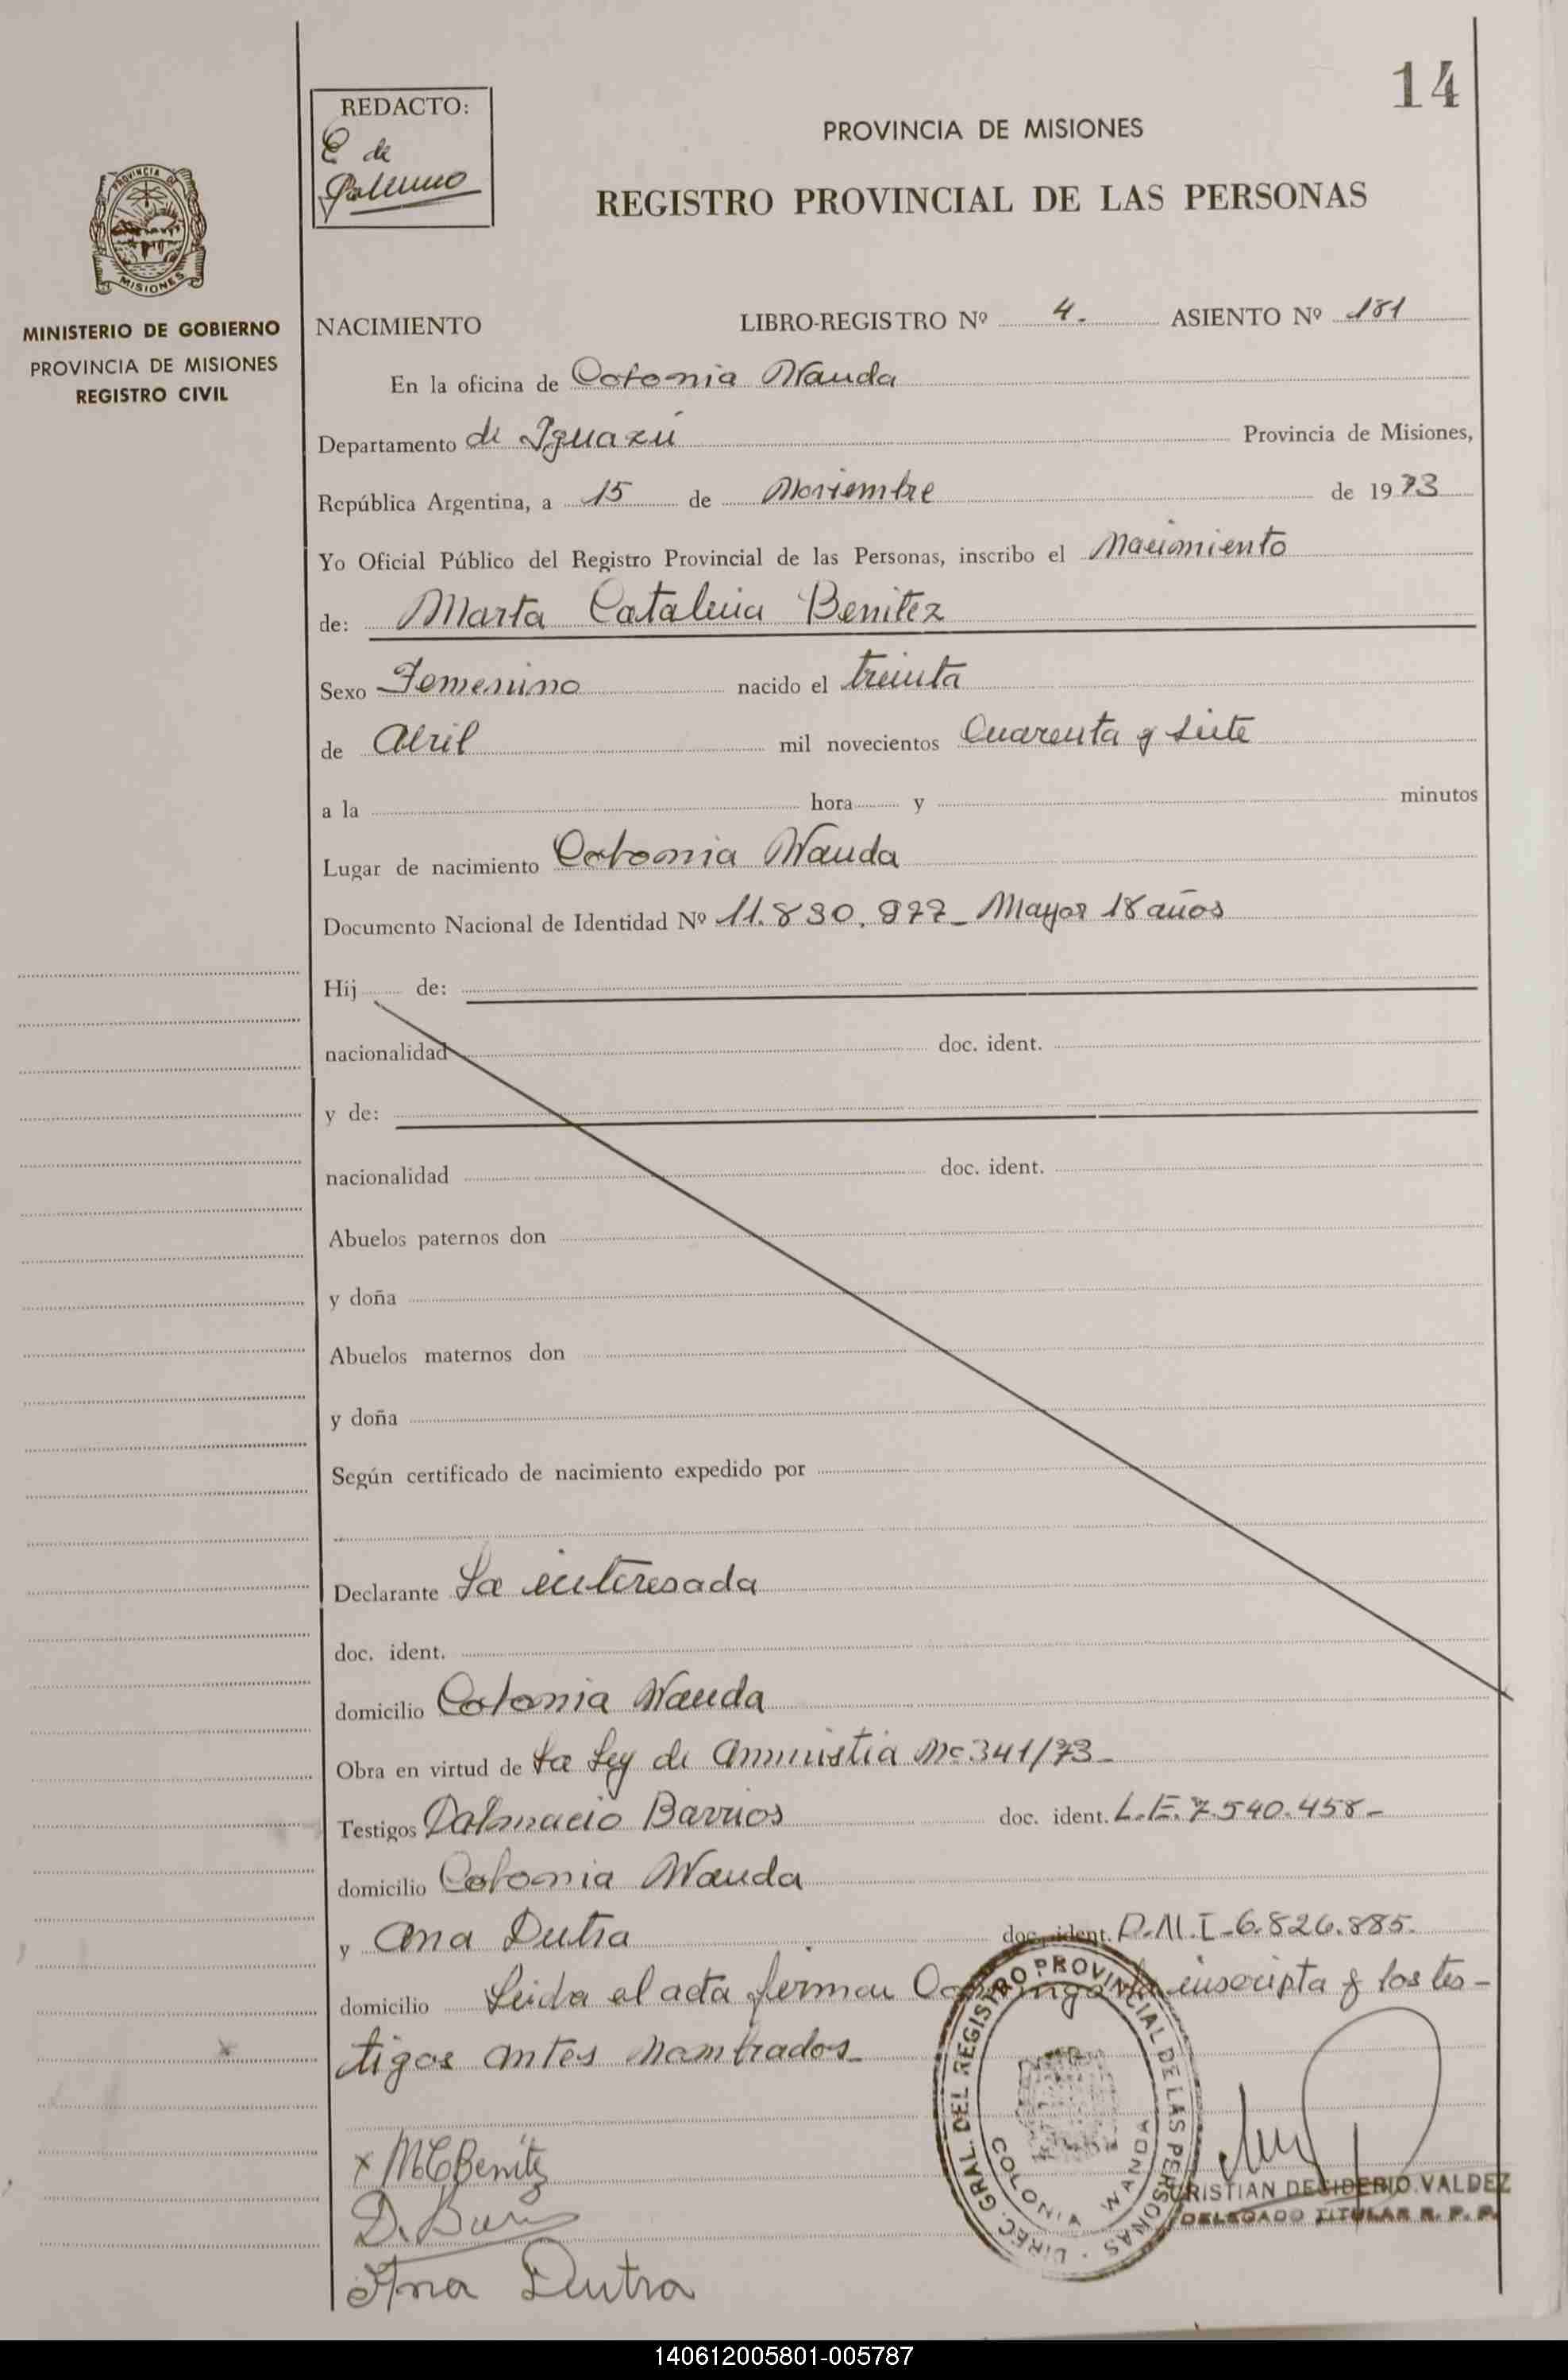 14
REDACTO:
E de
Palermo
PROVINCIA DE MISIONES
REGISTRO PROVINCIAL DE LAS PERSONAS
PROVINCIA DE
MISIONES
MINISTERIO DE GOBIERNO
PROVINCIA DE MISIONES
REGISTRO CIVIL
NACIMIENTO LIBRO-REGISTRO Nº 4. ASIENTO Nº 181
En la oficina de Colonia Wanda
Departamento de Iguazú Provincia de Misiones,
República Argentina, a 15 de Noviembre de 1973
Yo Oficial Público del Registro Provincial de las Personas, inscribo el Nacimiento
de: Marta Catalina Benitez
Sexo Femenino nacido el treinta
de Abril mil novecientos Cuarenta y siete
a la hora y minutos
Lugar de nacimiento Colonia Wanda
Documento Nacional de Identidad Nº 11.830.977_ Mayor 18 años
Hij de:
nacionalidad doc. ident.
y de:
nacionalidad doc. ident.
Abuelos paternos don
y doña
Abuelos maternos don
y doña
Según certificado de nacimiento expedido por
Declarante La interesada
doc. ident.
domicilio Colonia Wanda
Obra en virtud de La Ley de Amnistia Nº 341/73_
Testigos Dalmacio Barrios doc. ident. L.E. 7.540.458_
domicilio Colonia Wanda
y Ana Dutra doc. ident. D.N.I_6.826.885.
domicilio Leida el acta firman Conmigo la inscripta y los tes-
tigos antes nombrados_
DIREC. GRAL. DEL REGISTRO PROVINCIAL DE LAS PERSONAS
COLONIA WANDA
x MCBenitez
D. Barrios
Ana Dutra
CRISTIAN DESIDERIO VALDEZ
DELEGADO TITULAR R. P. P.
140612005801-005787